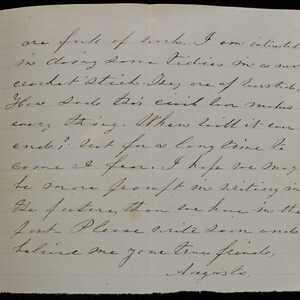 are full of such. I am interested
in doing some tidies in a new
crochet stitch. They are of
How sad this civil war makes
every thing. When will it ever
end? not for a long time to
come I fear. I hope we may
be more prompt in writing in
the future, than we have in the
past. Please write soon and
believe me your true friend,
Augusta.